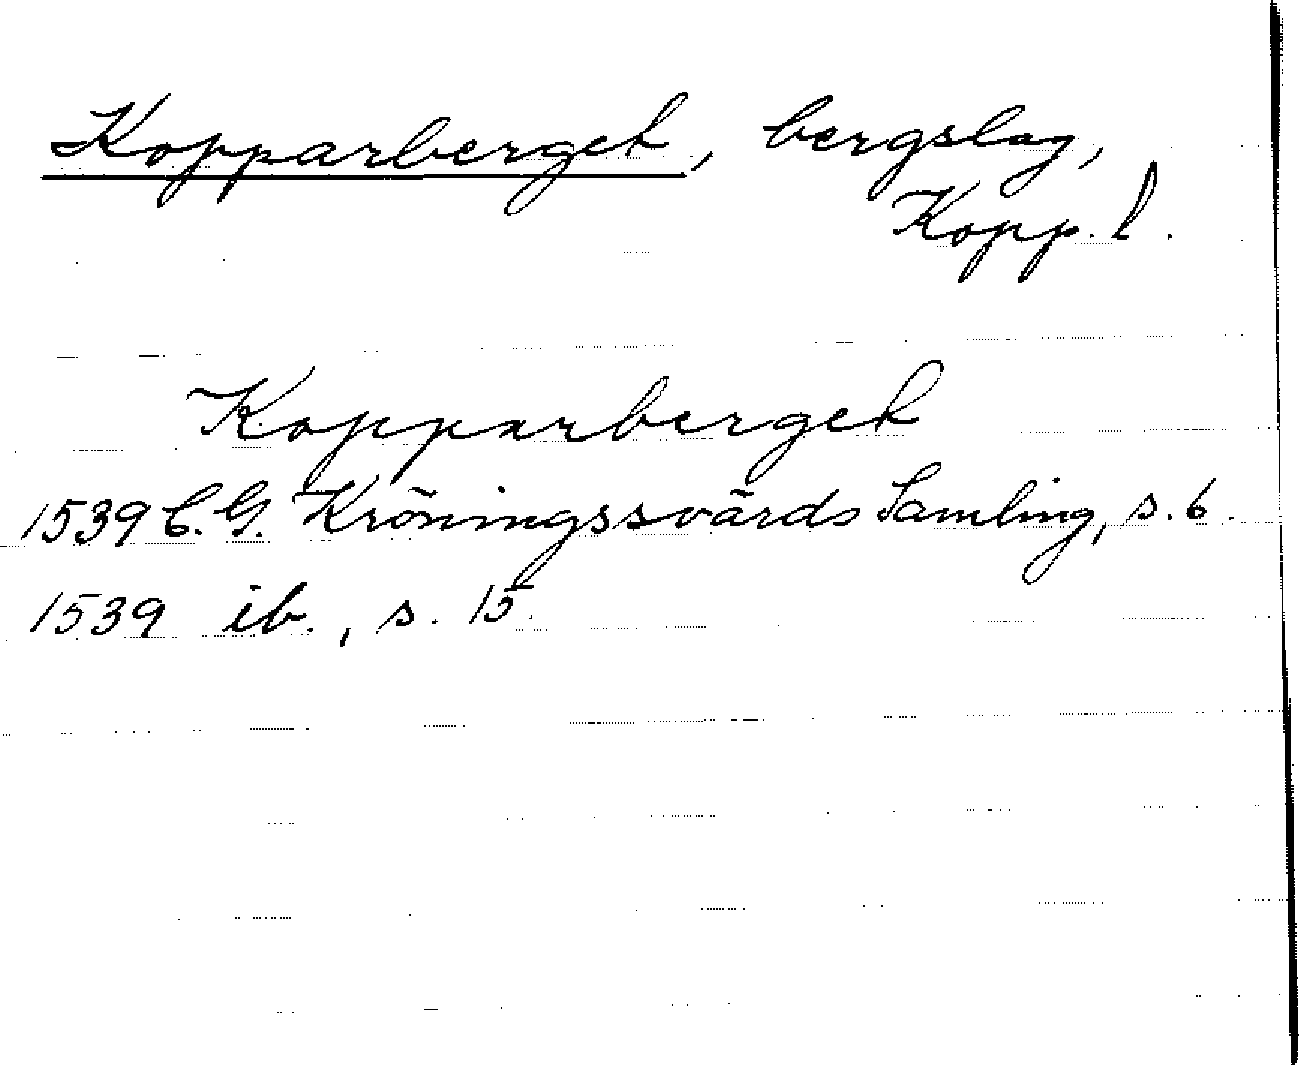 Kopparberget, bergslag,
Kopp. l.
Kopparberget
1539 C. G. Kröningssvärds Samling, s. 6.
1539 ib., s. 15.